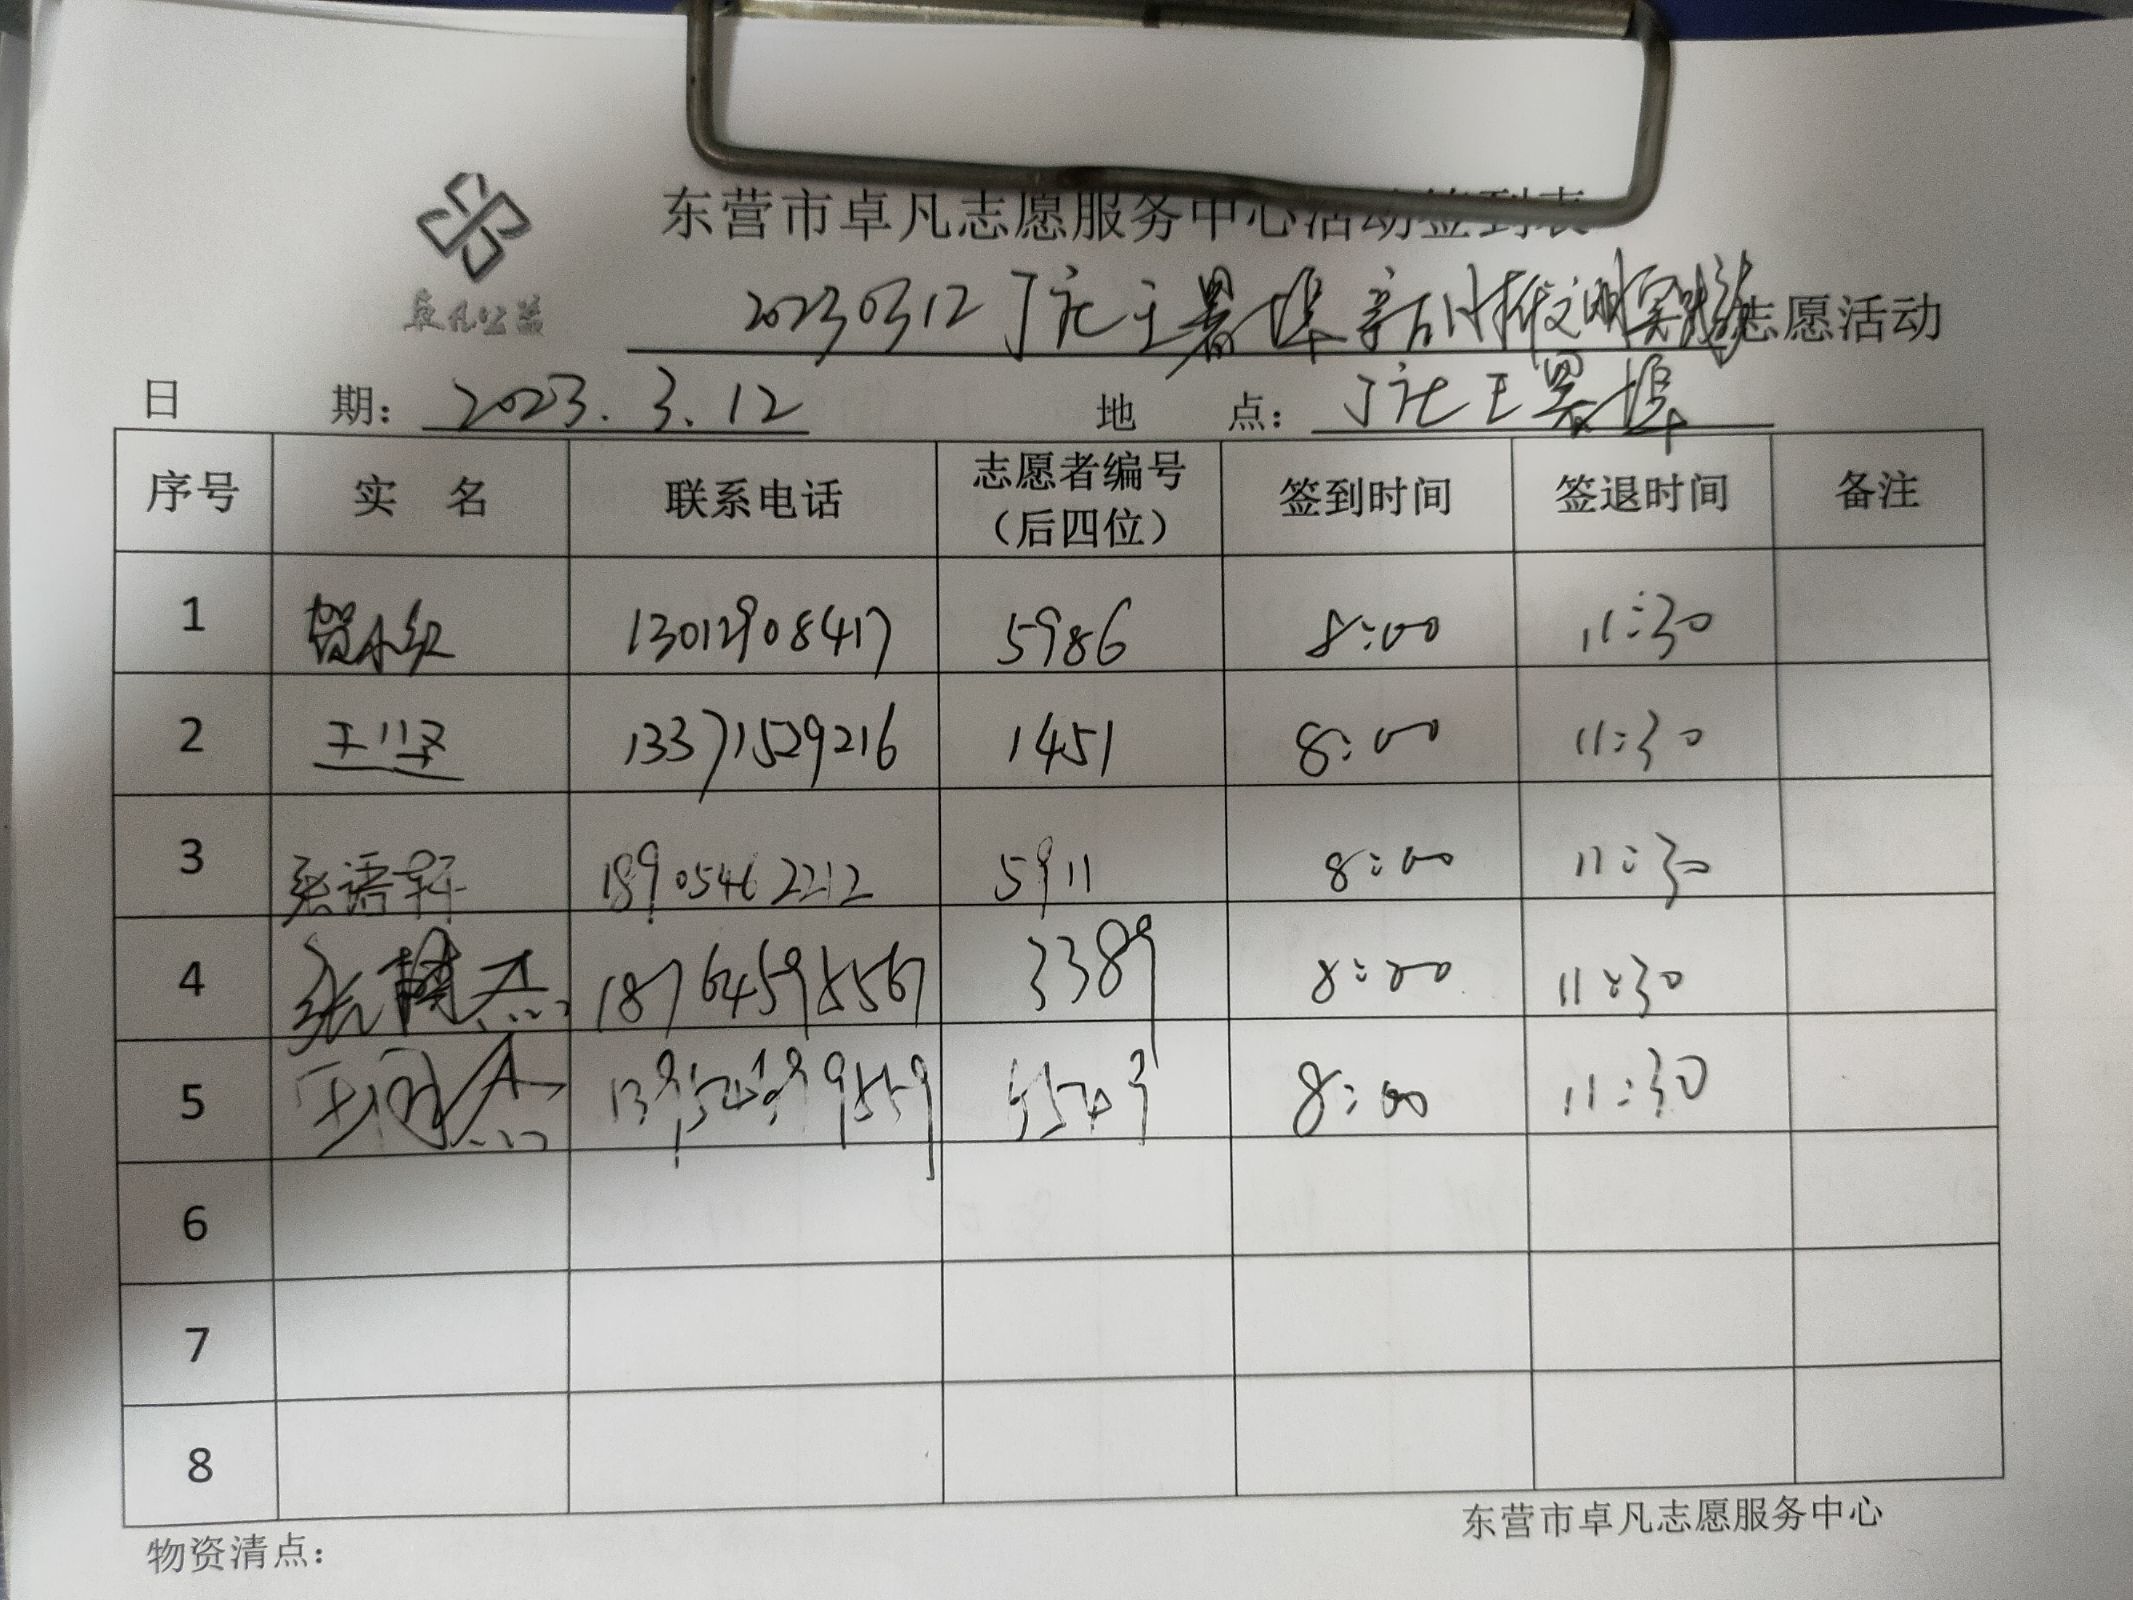 东营市卓凡志愿服务中心活动签到表
卓凡公益
20230312丁庄王署埠新时代文明实践 志愿活动
日 期: 2023.3.12 地 点: 丁庄王署埠
序号 实 名 联系电话 志愿者编号(后四位) 签到时间 签退时间 备注
1 贺小红 13012908417 5986 8:00 11:30
2 王坚 13371529216 1451 8:00 11:30
3 张语轩 18905462212 5911 8:00 11:30
4 张 杰 18764598567 3389 8:00 11:30
5 王 杰 8:00 11:30
6
7
8
东营市卓凡志愿服务中心
物资清点: